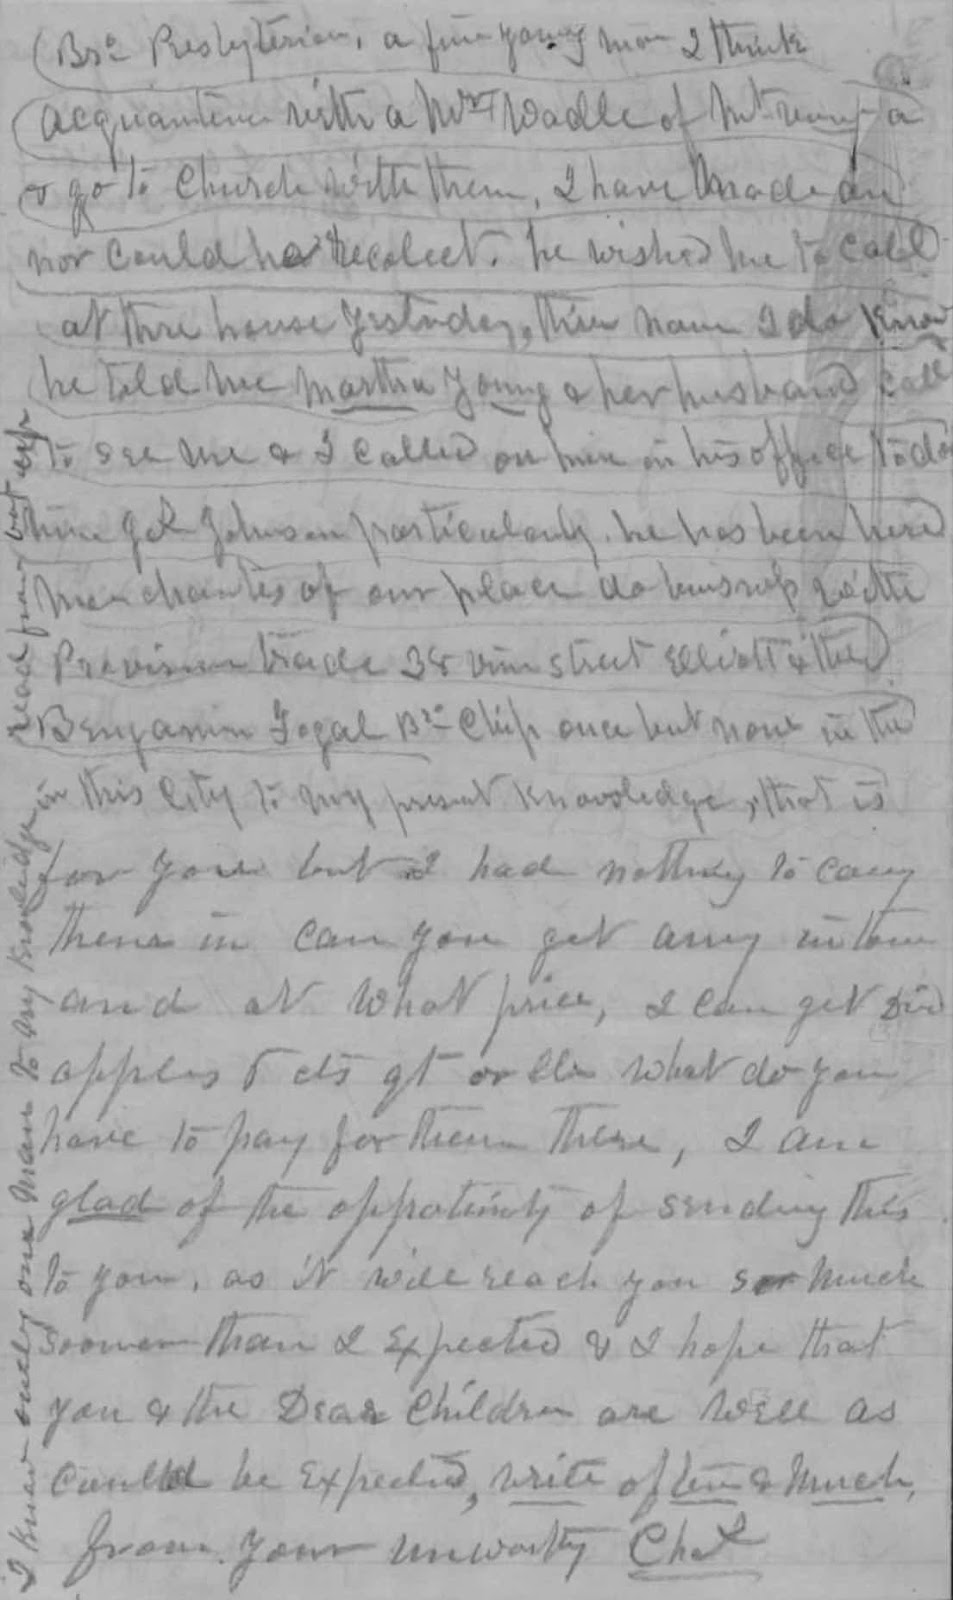 (Bro Presbyterian, a fine young man I think
acquaintence with a Mr Wadle of Mt
& go to Church with them, I have made an
nor could he recolect. he wished me to call
at thre house yestuday, thier name I do know
he told me Martha Young & her husband call
to see me & I called on him in his offiece to da
him Johnson particularly. he has been here
merchantes of our place do buisness with
Provision trade 38 vine street Elliott & the
Benjamin Fogal Bro Chip once but now in the
in this City to my present knowledge, that is
for you but I had nothing to cary
them in can you get any in town
and at what price, I can get Dri
apples 5 cts qt or what do you
have to pay for them there, I am
glad of the oppotinity of sending this
to you, as it will reach you so much
sooner than I Expected & I hope that
you & the Dear Children are well as
could be Expected, write often & much,
from your unworthy Chat
I know only one man to my knowledge in
read from